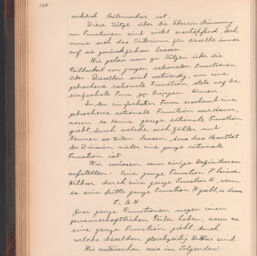 wirklich bestimmbar ist.
Diese Sätze über die Übereinstimmung
von Funktionen sind nicht erschöpfend, doch
muss sich das Criterium für dieselbe immer
auf sie zurückführen lassen.
Wir gehen nun zu Sätzen über die
Teilbarkeit von ganzen rationalen Functionen
über. Dieselben sind notwendig, um eine
gebrochene rationale Function stets auf die
einfachste Form zu bringen können.
In der einfachsten Form erscheint eine
gebrochene rationale Function nur dann,
wenn es keine ganze rationale Function
giebt, durch welche sich Zähler und
Nenner so teilen lassen, dass das Resultat
der Division wieder eine ganze rationale
Function ist.
Wir müssen nun einige Definitionen
aufstellen: Eine ganze Function F heisse
teilbar durch eine ganze Function G, wenn
es eine dritte ganze Function H giebt, so dass
F = G.H
Zwei ganze Functionen mögen einen
gemeinschaftlichen Teiler haben, wenn es
eine ganze Function giebt, durch
welche dieselben gleichzeitig teilbar sind.
Wir untersuchen nun im Folgenden: